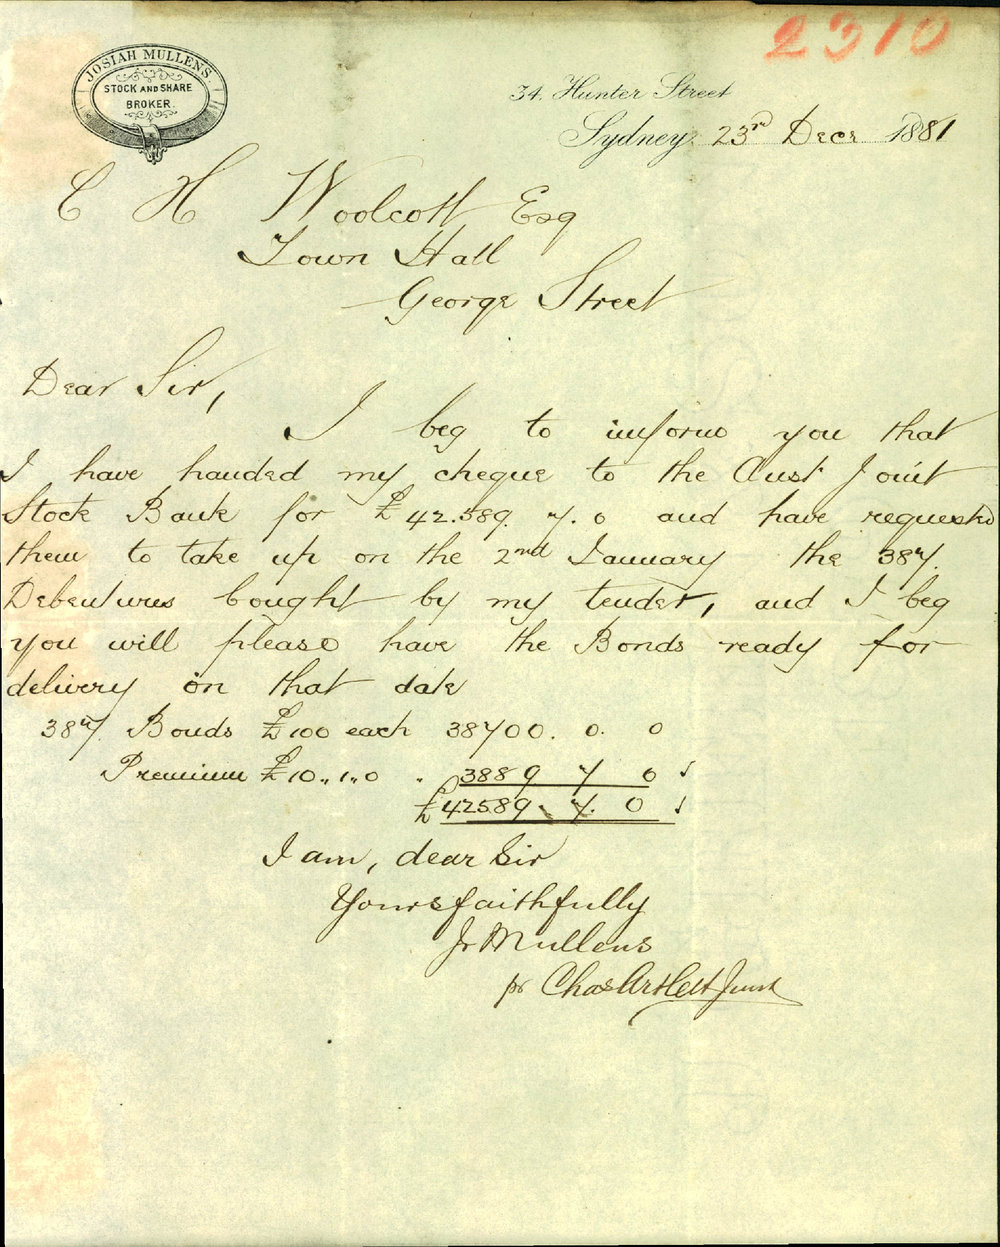 2310
JOSIAH MULLENS.
STOCK AND SHARE
BROKER.
34, Hunter Street
Sydney, 23rd Decr 1881
C H Woolcott Esq
Town Hall
George Street
Dear Sir,
I beg to inform you that
I have handed my cheque to the Aust Joint
Stock Bank for £42.589. 7. 0 and have requested
them to take up on the 2nd January the 387
Debentures bought by my tender, and I beg
you will please have the Bonds ready for
delivery on that date
387 Bonds £100 each 38700. 0. 0
Premium £10.,1.,0 . 3889 7 0
£42589 7. 0
I am, dear Sir
Yours faithfully
Jr Mullens
pr Chas